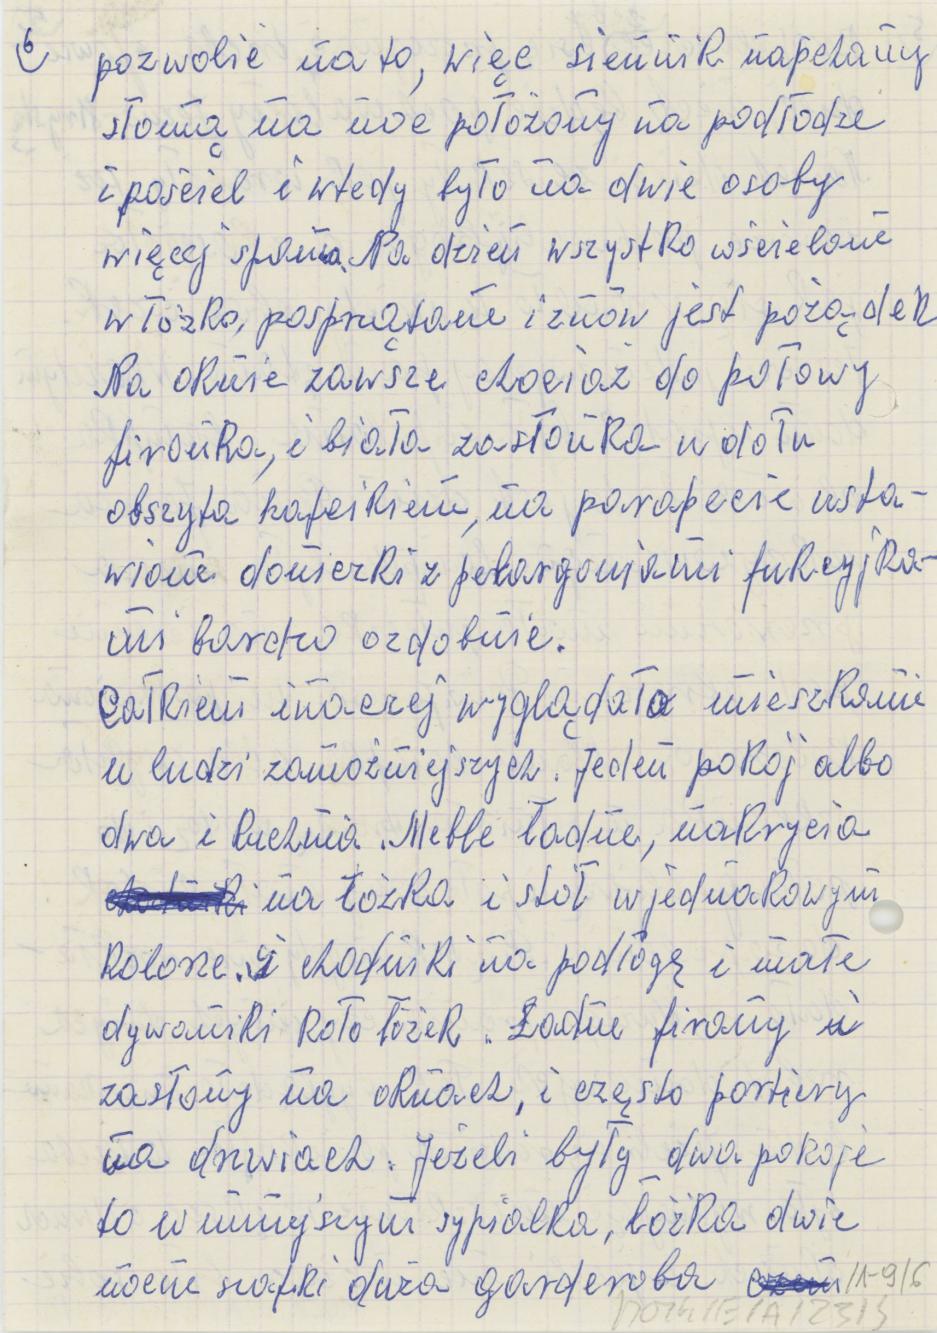 6
pozwolić na to, więc siennik napchany
słomą na noc położony na podłodze
i pościel i wtedy było na dwie osoby
więcej spania. Na dzień wszystko wścielone
w łóżka, posprzątane i znów jest pożądek
Na oknie zawsze chociaż do połowy
firanka, i biała zasłonka u dołu
obszyta hafcikiem, na parapecie usta-
wione doniczki z pelargoniami fukcyjka-
mi bardzo ozdobnie.
Całkiem inaczej wyglądało mieszkanie
u ludzi zamożniejszych. Jeden pokój albo
dwa i kuchnia. Meble ładne, nakrycia
na łóżka i stół w jednakowym
kolorze. i chodniki na podłogę i małe
dywaniki koło łóżek. Ładne firany i
zasłony na oknach, i często portiery
na drzwiach. Jeżeli były dwa pokoje
to w mniejszym sypialka, łóżka dwie
nocne szafki duża garderoba
/1-9/6